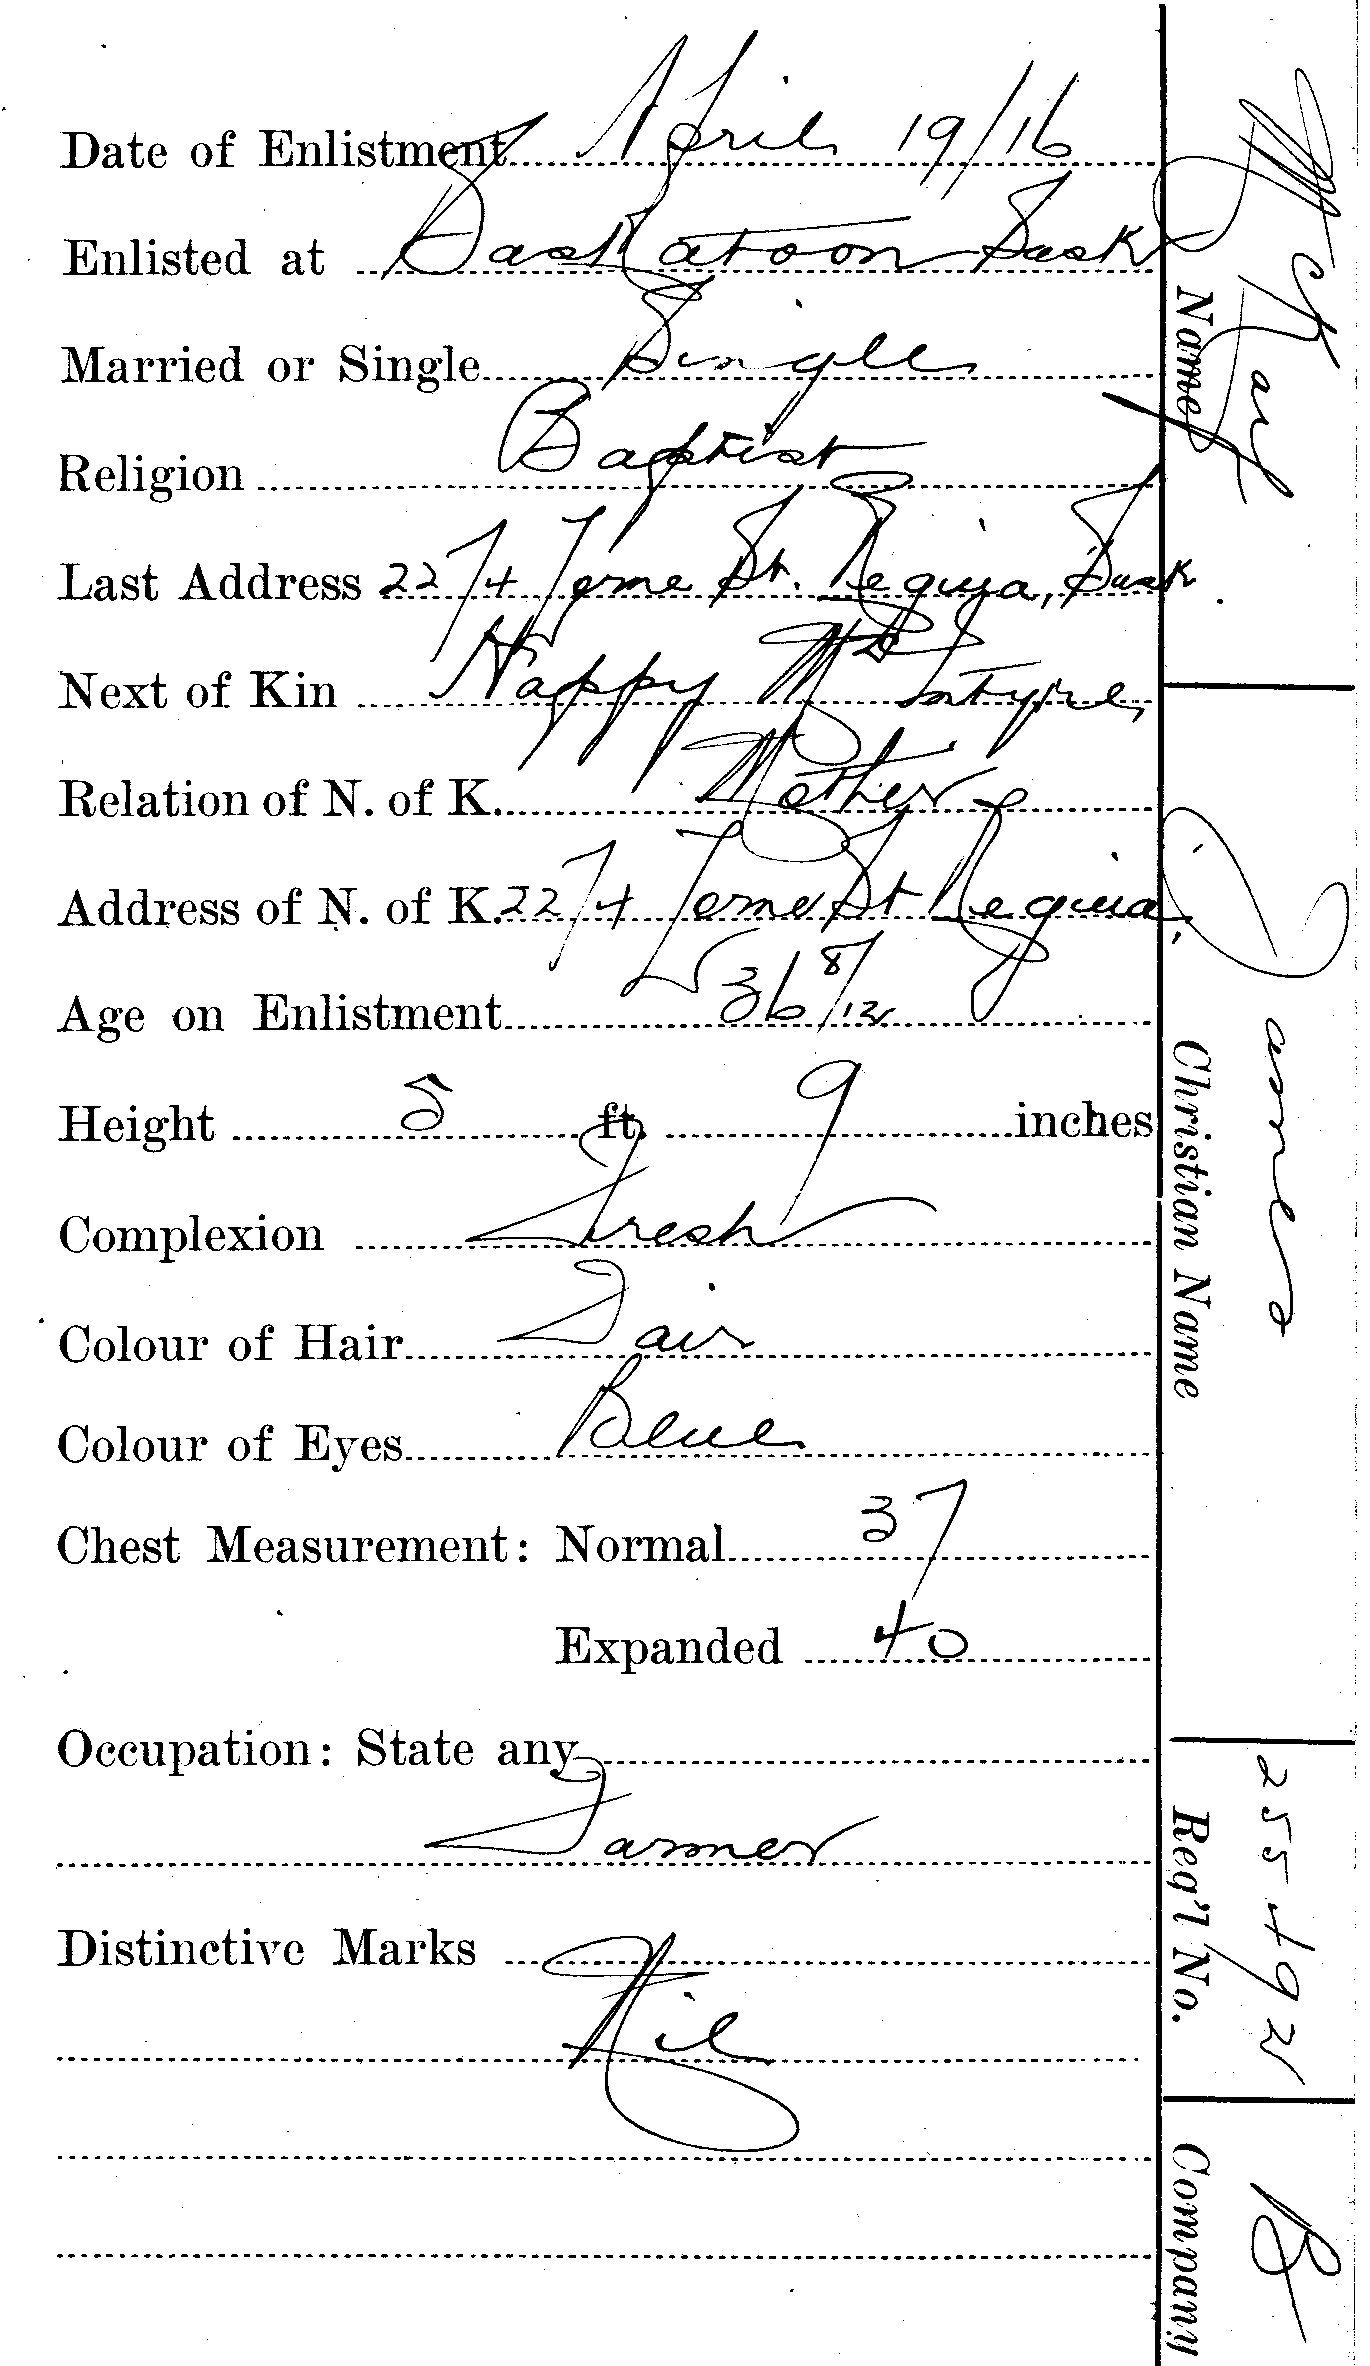 Date of Enlistment April 19/16
Enlisted at Saskatoon Sask
Married or Single Single
Religion Baptist
Last Address 2274 Lorne St. Regina, Sask
Next of Kin Happy McIntyre
Relation of N. of K. Mother
Address of N. of K. 2274 Lorne St Regina
Age on Enlistment 36 8/12
Height 5 ft. 9 inches
Complexion Fresh
Colour of Hair Fair
Colour of Eyes Blue
Chest Measurement: Normal 37
Expanded 40
Occupation: State any
Farmer
Distinctive Marks
Nil
McKay
Name
James
Christian Name
255492
Reg'l No.
B
Company